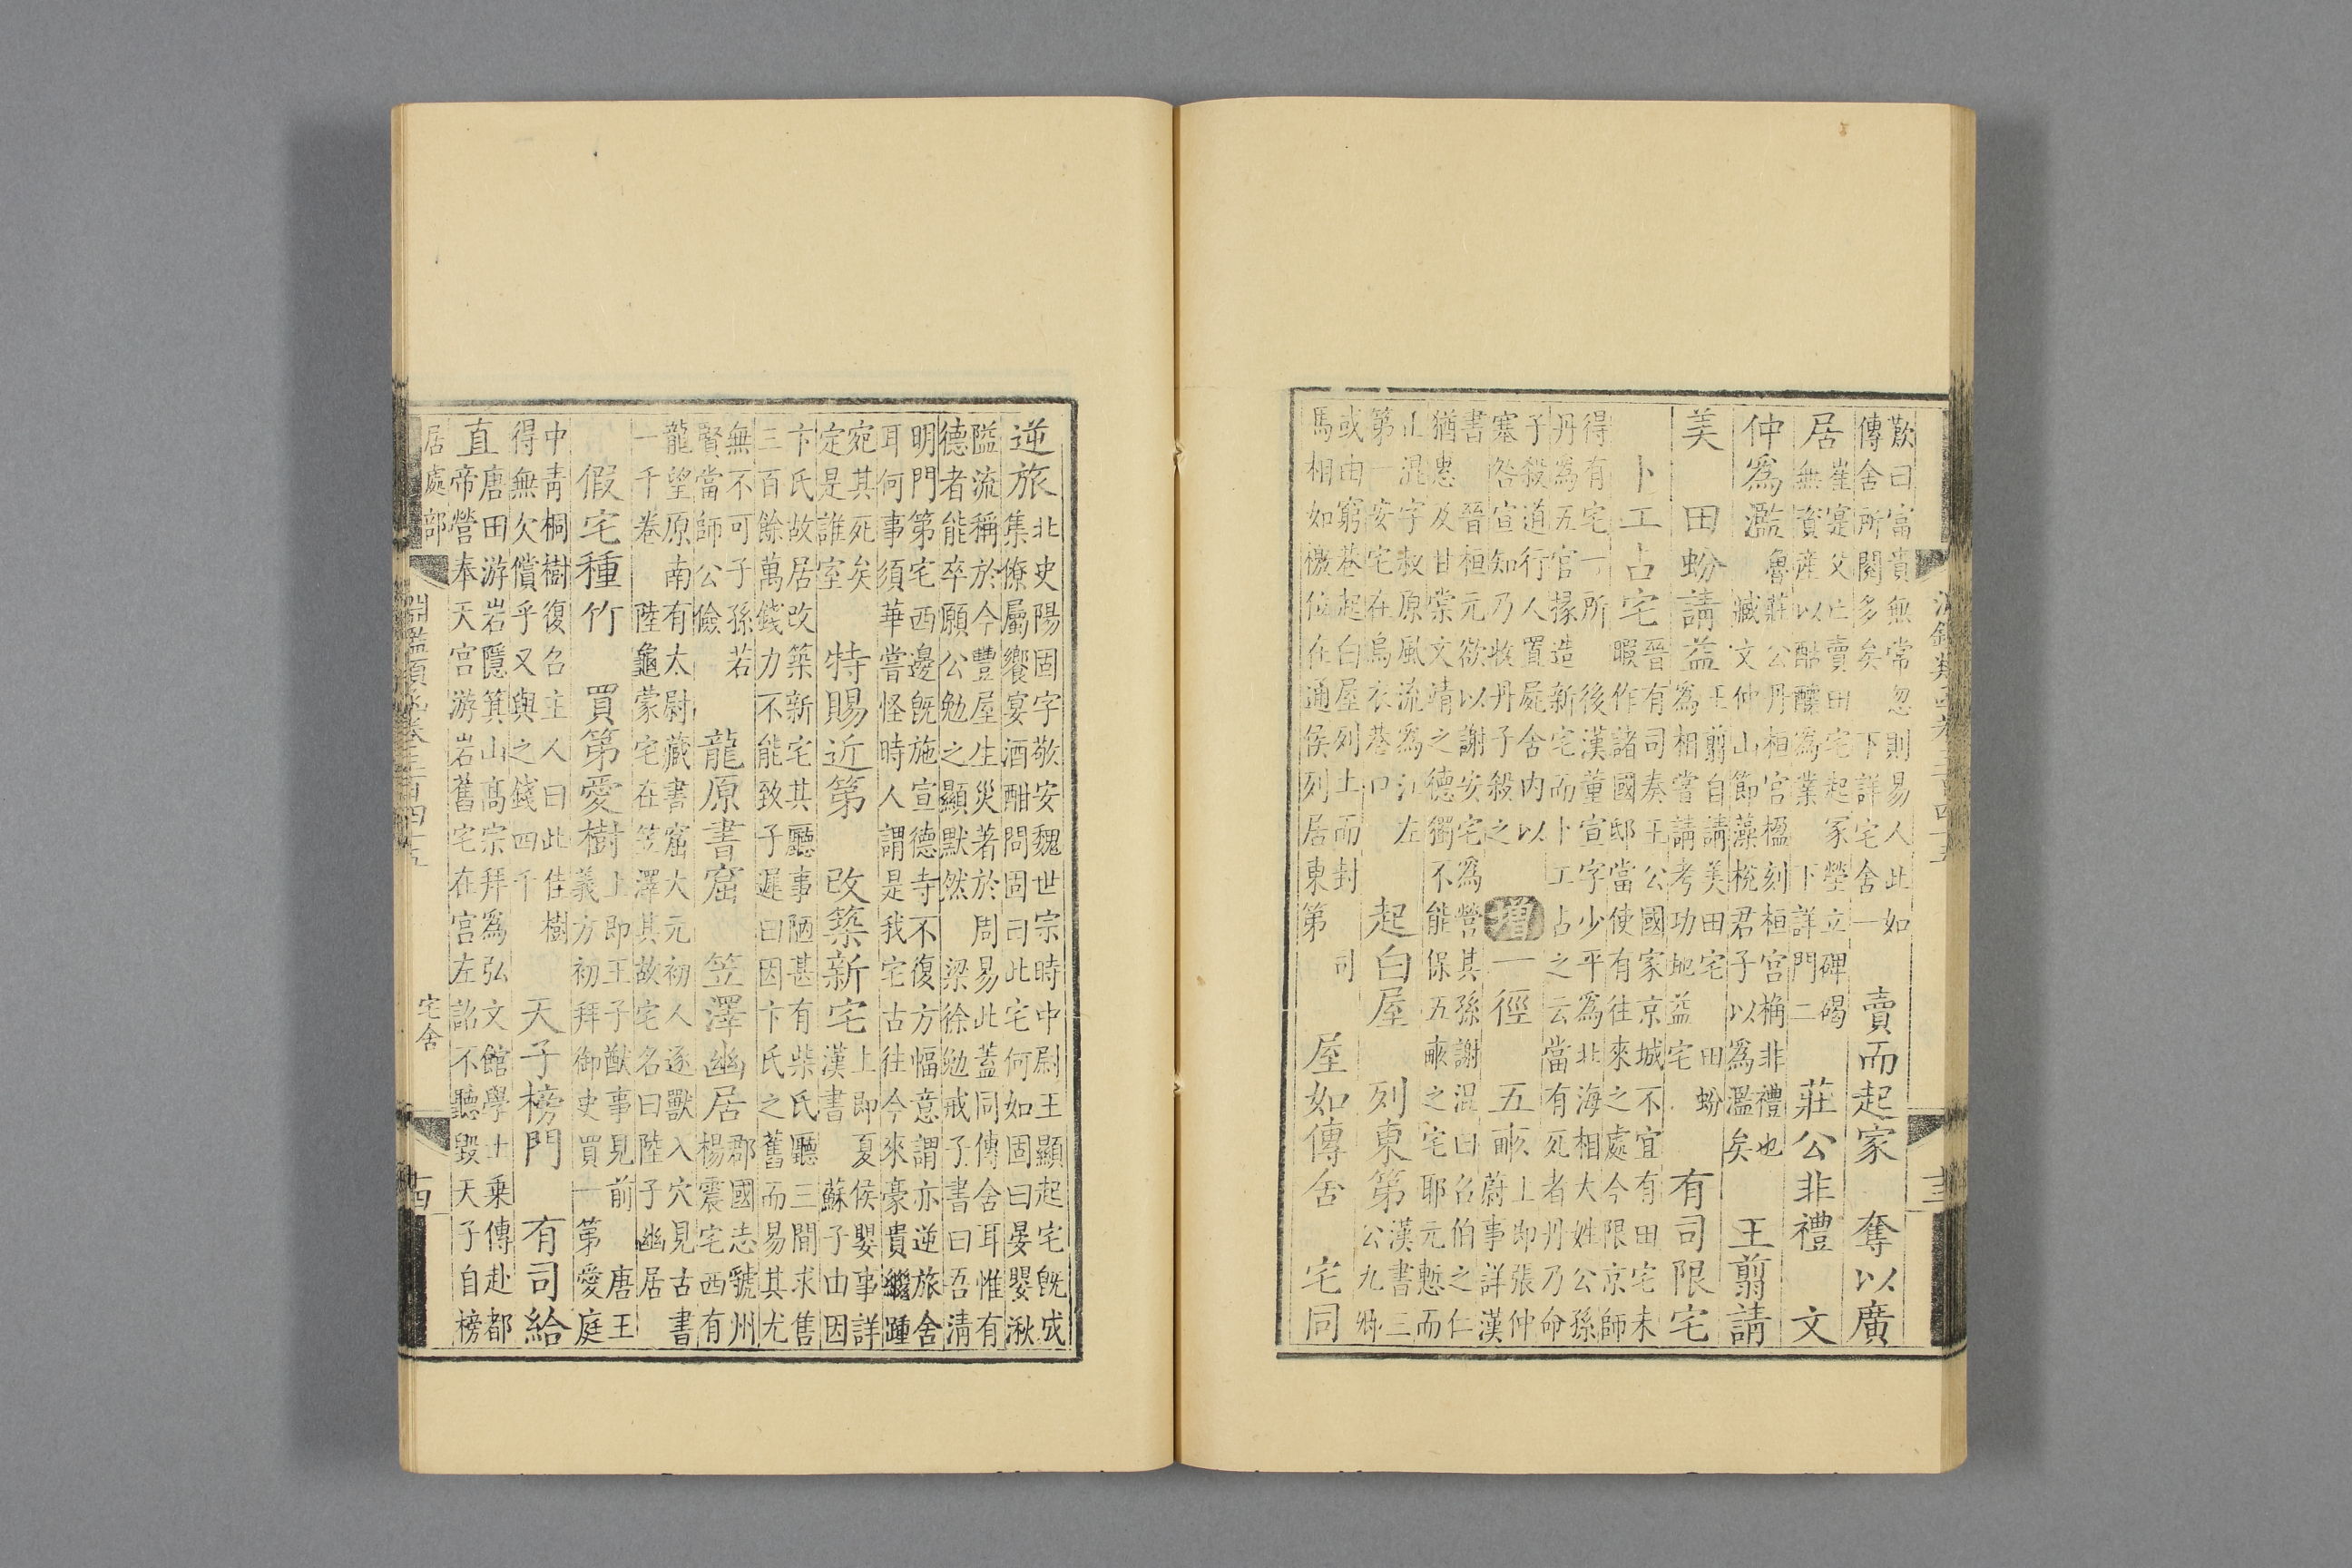 歎曰富貴無常忽則易人此如
傳舍所閱多矣 下詳宅舍一
賣而起家 奪以廣
居
崔寔父亡賣田宅起冢塋立碑碣
無資產以酤釀為業 下詳門二
莊公非禮 文
仲爲濫
魯莊公丹桓宮楹刻桓宮桷非禮也
臧文仲山節藻梲君子以為濫矣
王翦請
美田 蚡請益
王翦自請美田宅 田蚡
為相嘗請考功地益宅
有司限宅
晉有司奏王公國家京城不宜有田宅未
暇作諸國邸當使有往來之處今限京師
得有宅一所
卜工占宅
後漢董宣字少平為北海相大姓公孫
丹為五官掾造新宅而卜工占之云當有死者丹乃命
子殺道行人置屍舍内以
塞咎宣知乃收丹子殺之
增一徑 五畝
上即張仲
蔚事詳漢
書 晉桓元欲以謝安宅為營其孫謝混曰召伯之仁
猶惠及甘棠文靖之德獨不能保五畝之宅耶元慙而
止混字叔源風流為江左
第一安宅在烏衣巷口
起白屋 列東第
漢書三
公九卿
或由窮巷起白屋列土而封 司
馬相如檄位在通侯列居東第
屋如傳舍 宅同
逆旅
北史陽固字敬安魏世宗時中尉王顯起宅既成
集僚屬饗宴酒酣問固曰此宅何如固曰晏嬰湫
隘流稱於今豐屋生災著於周易此蓋同傳舍耳惟有
德者能卒願公勉之顯默然 梁徐勉戒子書曰吾清
明門第宅西邊既施宣德寺不復方幅意謂亦逆旅舍
耳何事須華嘗怪時人謂是我宅古往今來豪貴繼踵
宛其死矣
定是誰室
特賜近第 改築新宅
上即夏侯嬰事詳
漢書 蘇子由因
卞氏故居改築新宅其廳事陋甚有柴氏廳三間求售
三百餘萬錢力不能致子遲曰因卞氏之舊而易其尤
無不可子孫若
賢當師公儉
龍原書窟 笠澤幽居
郡國志虢州
楊震宅西有
龍望原南有太尉藏書窟大元初人逐獸入穴見古書
一千卷 陸龜蒙宅在笠澤其故宅名曰陸子幽居
假宅種竹 買第愛樹
上即王子猷事見前 唐王
義方初拜御史買一第愛庭
中青桐樹復召主人曰此佳樹
得無欠償乎又與之錢四千
天子榜門 有司給
直
唐田游岩隱箕山高宗拜為弘文館學士乗傳赴都
帝營奉天宮游岩舊宅在宮左詔不聽毀天子自榜
居處部 淵鑑類函卷三百四十五 宅舍 十四